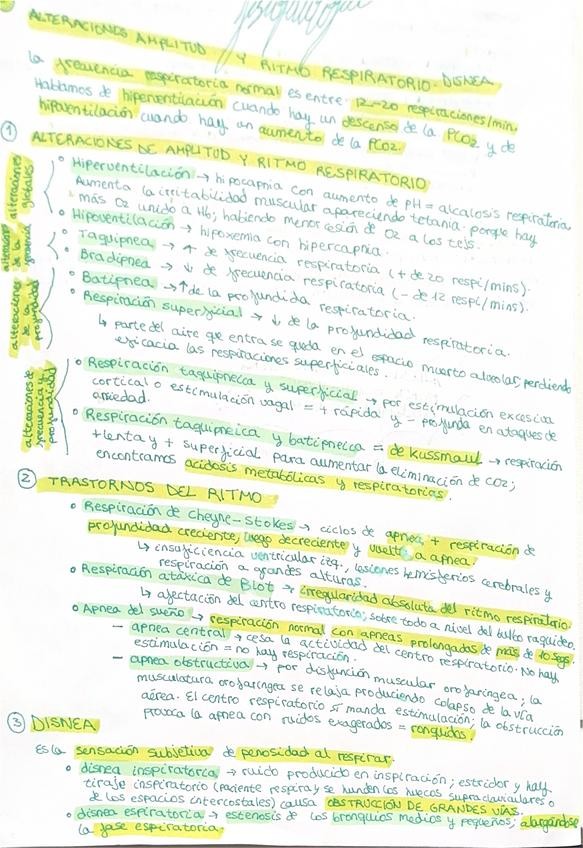 Fisiopatología
ALTERACIONES AMPLITUD Y RITMO RESPIRATORIO. DISNEA
La frecuencia respiratoria normal es entre 12-20 respiraciones/min.
Hablamos de hiperventilación cuando hay un descenso de la PCO2 y de
hipoventilación cuando hay un aumento de la PCO2.
① ALTERACIONES DE AMPLITUD Y RITMO RESPIRATORIO
alteraciones globales
• Hiperventilación → hipocapnia con aumento de pH = alcalosis respiratoria
Aumenta la irritabilidad muscular apareciendo tetania. porque hay
más O2 unido a Hb; habiendo menor cesión de O2 a los tejs.
• Hipoventilación → hipoxemia con hipercapnia.
alteracion de la frecuencia
• Taquipnea → ↑ de frecuencia respiratoria (+ de 20 respi/mins).
• Bradipnea → ↓ de frecuencia respiratoria (- de 12 respi/mins).
alteraciones de la profundidad
• Batipnea → ↑ de la profundida respiratoria.
• Respiración superficial → ↓ de la profundidad respiratoria.
↳ parte del aire que entra se queda en el espacio muerto alveolar, perdiendo
eficacia las respiraciones superficiales.
alteraciones de frecuencia y profundidad
• Respiración taquipneica y superficial → por estimulación excesiva
cortical o estimulación vagal = + rápida y - profunda en ataques de
ansiedad.
• Respiración taquipneica y batipneica = de Kussmaul → respiración
+ lenta y + superficial para aumentar la eliminación de CO2;
encontramos acidosis metabólicas y respiratorias.
② TRASTORNOS DEL RITMO
• Respiración de cheyne-Stokes → ciclos de apnea + respiración de
profundidad creciente, luego decreciente y vuelta a apnea.
↳ insuficiencia ventricular izq., lesiones hemisferios cerebrales y
respiración a grandes alturas.
• Respiración atáxica de Biot → irregularidad absoluta del ritmo respiratorio.
↳ afectación del centro respiratorio, sobre todo a nivel del bulbo raquídeo.
• Apnea del sueño → respiración normal con apneas prolongadas de más de 10 segs.
— apnea central → cesa la actividad del centro respiratorio. No hay
estimulación = no hay respiración.
— apnea obstructiva → por disfunción muscular orofaríngea; la
musculatura orofaríngea se relaja produciendo colapso de la vía
aérea. El centro respiratorio sí manda estimulación; la obstrucción
provoca la apnea con ruidos exagerados = ronquidos.
③ DISNEA
Es la sensación subjetiva de penosidad al respirar.
• disnea inspiratoria → ruido producido en inspiración; estridor y hay
tiraje inspiratorio (paciente respira y se hunden los huecos supraclaviculares o
de los espacios intercostales) causa OBSTRUCCIÓN DE GRANDES VÍAS.
• disnea espiratoria → estenosis de los bronquios medios y pequeños; alargándose
la fase espiratoria.